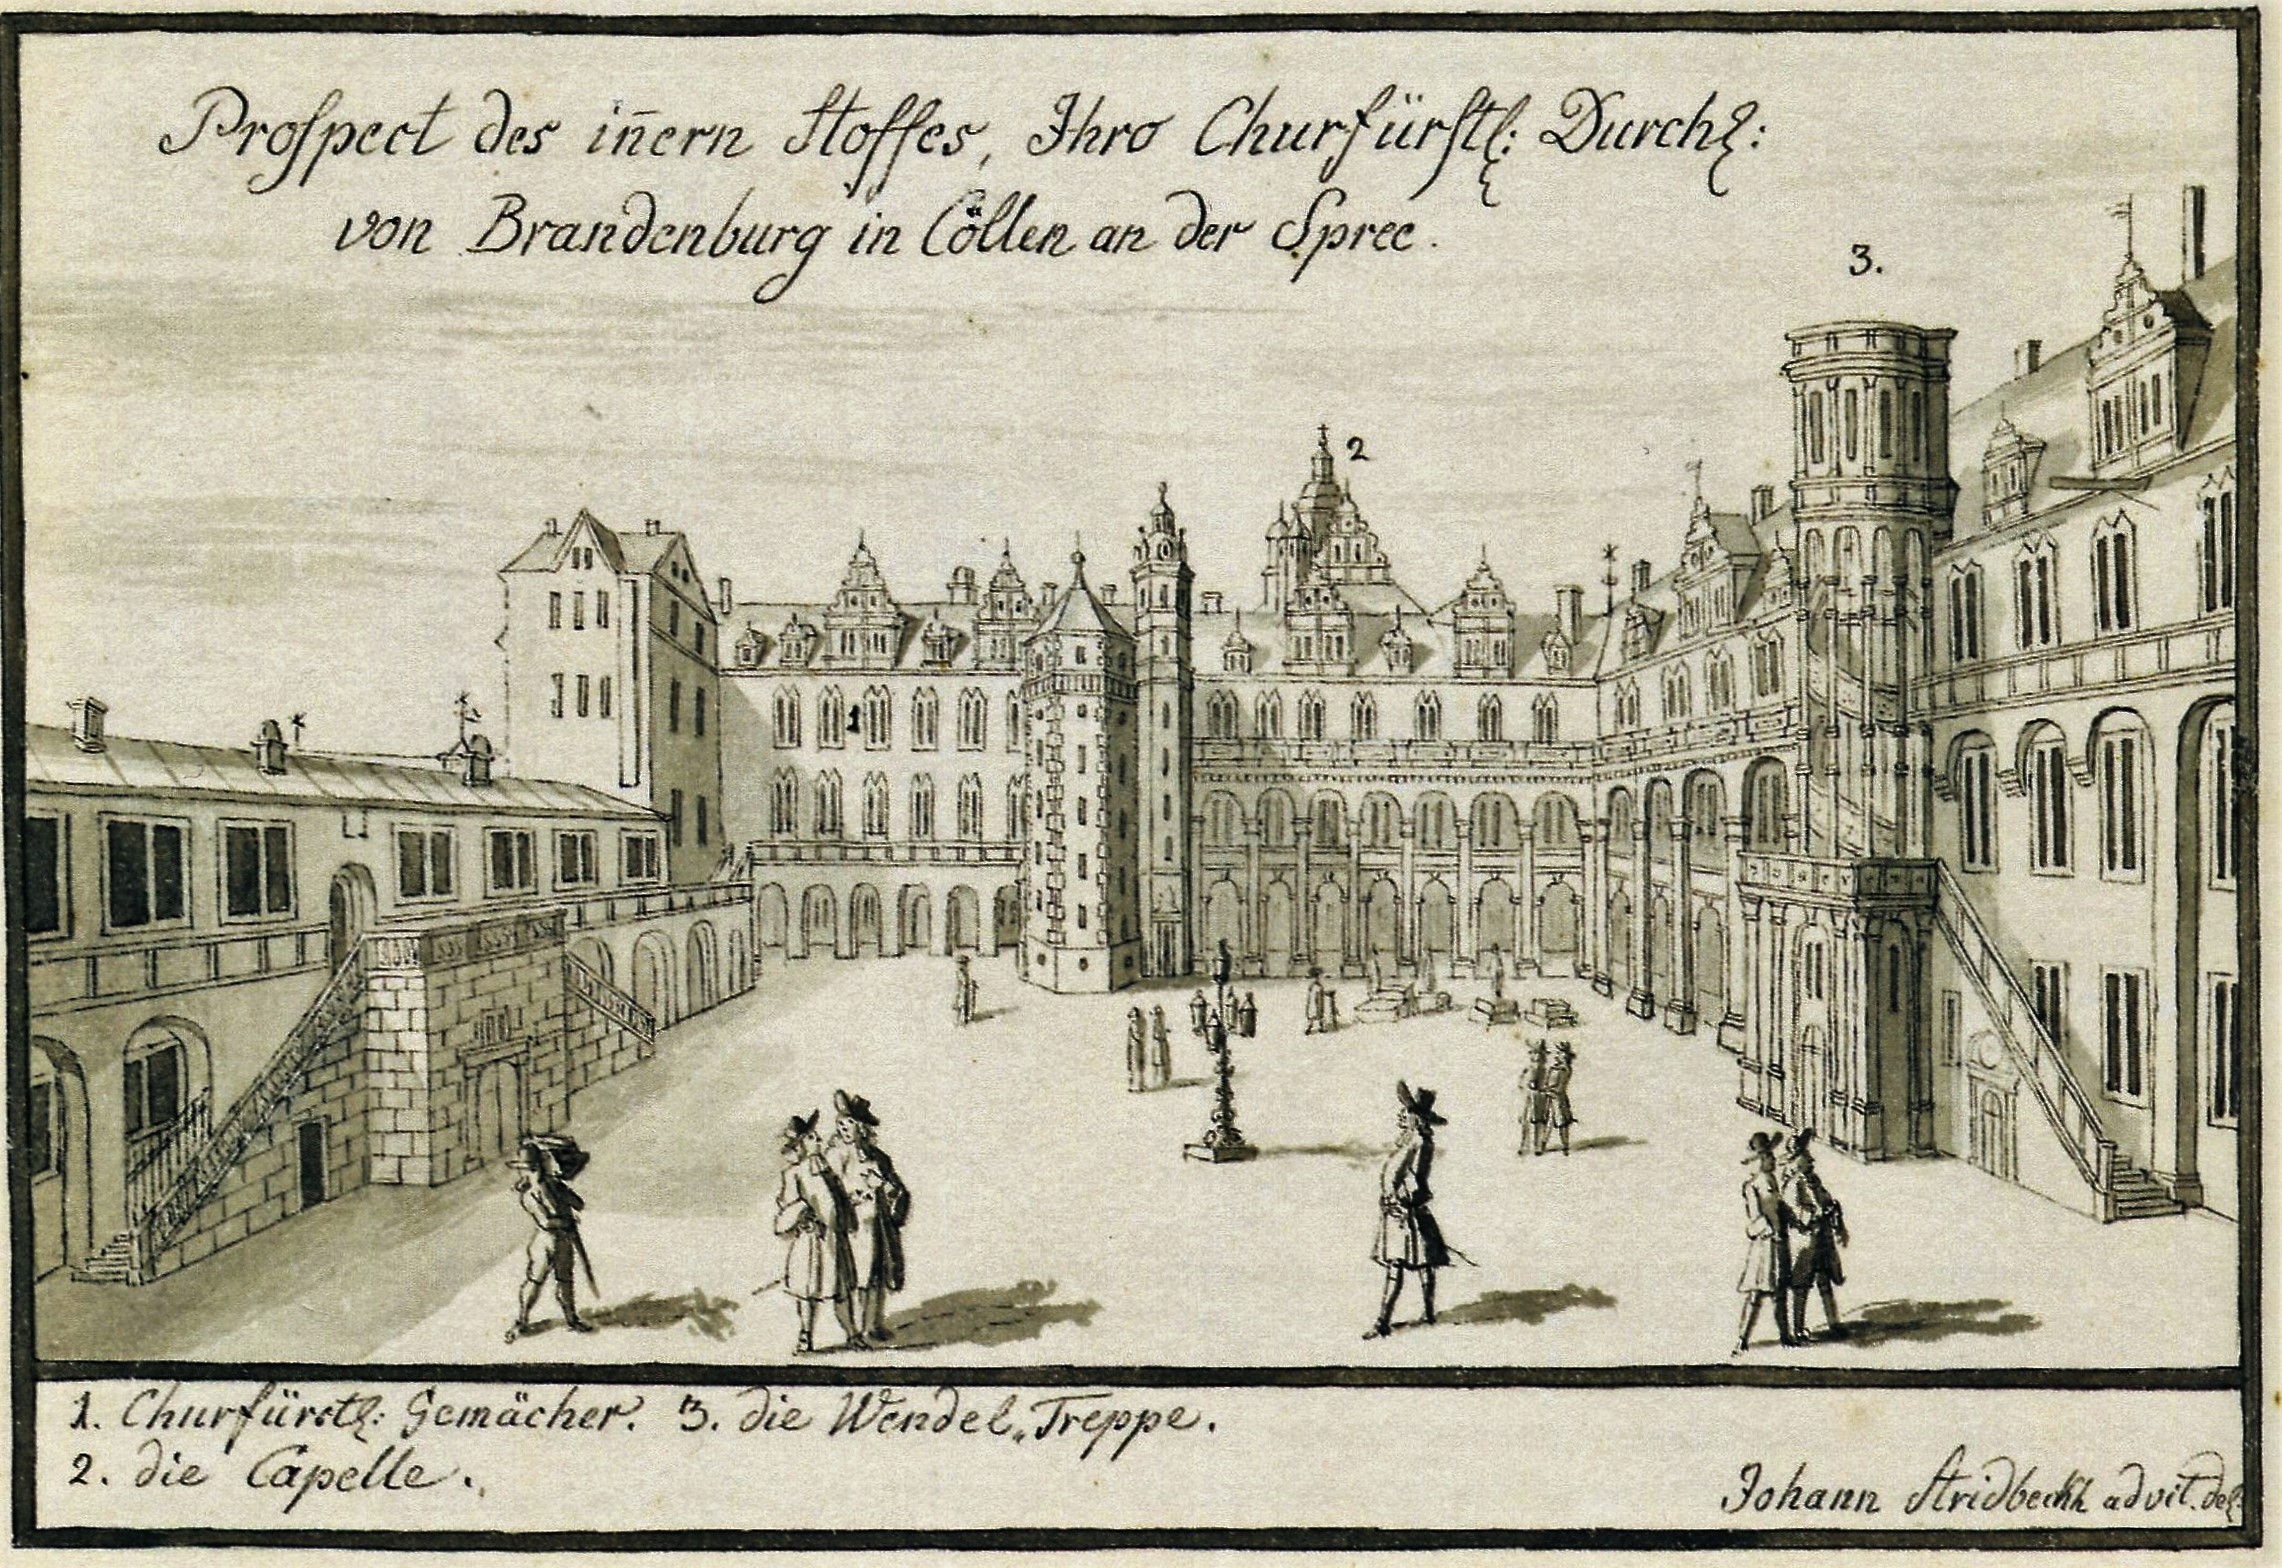 Proſpect des iñern Hoffes, Ihro Churfürſtl: Durchl:
von Brandenburg in Cöllen an der Spree.
3.
2
1
1. Churfürstl: Gemächer. 3. die Wendel„Treppe.
2. die Capelle.
Johann Stridbeckh ad vit. del: